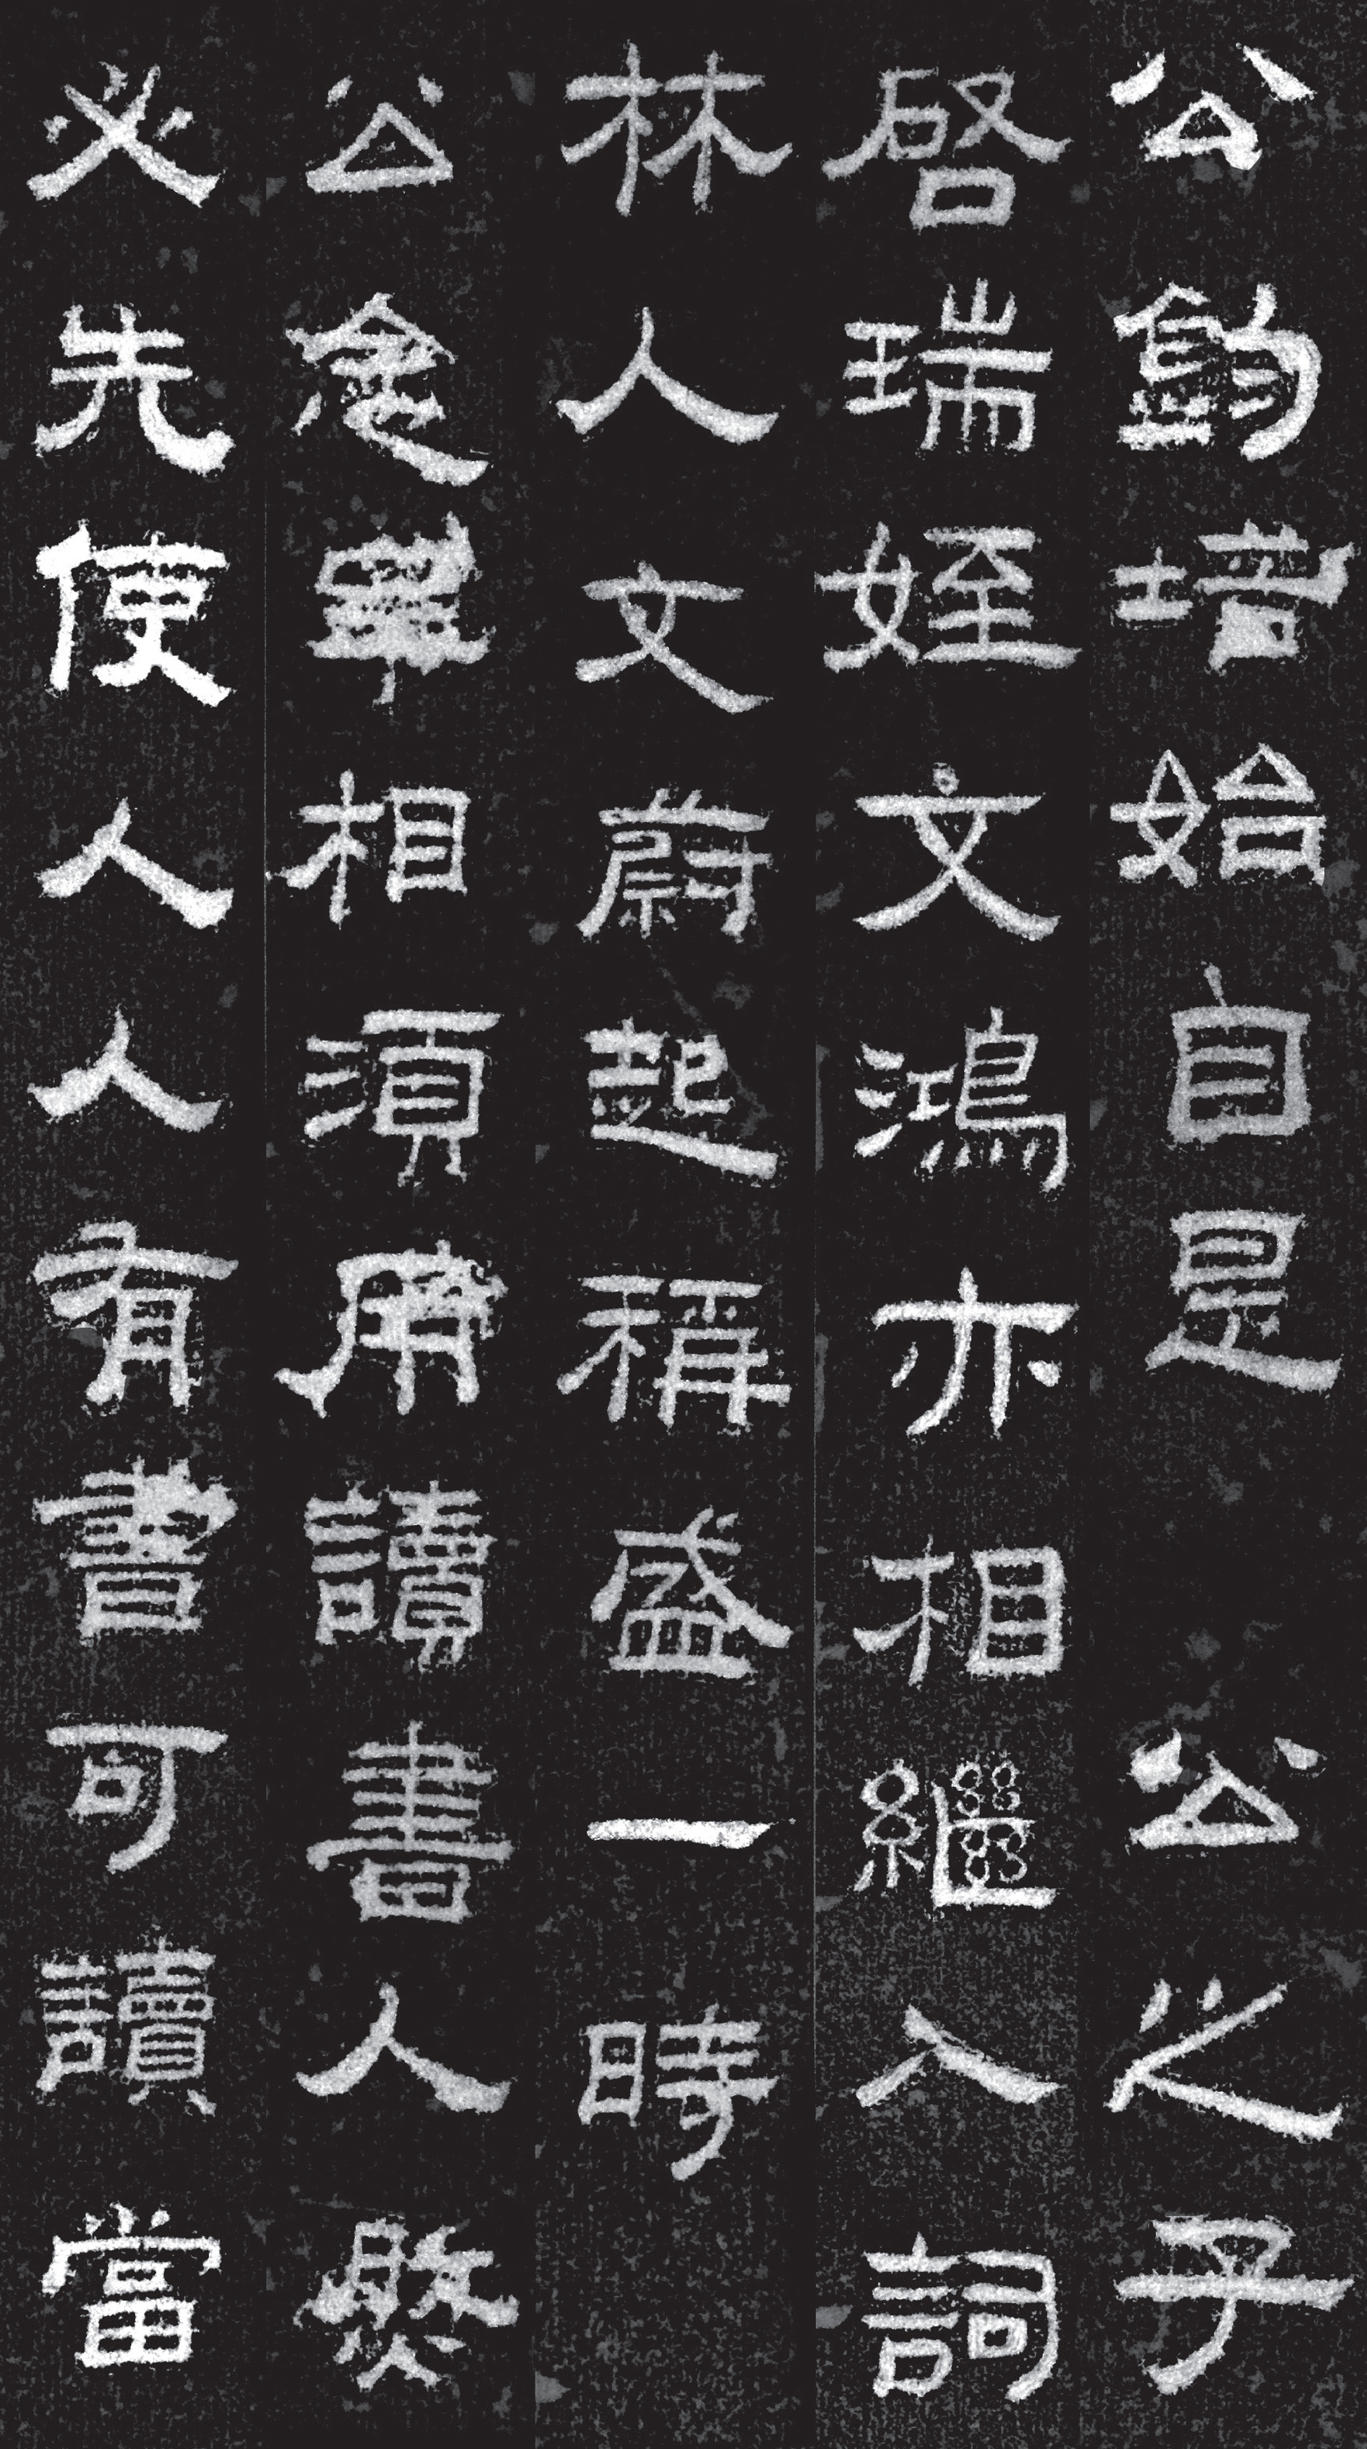 公鈞培始自是公之子
啓瑞姪文鴻亦相繼入詞
林人文蔚起稱盛一時
公念宰相須用讀書人然
必先使人人有書可讀當